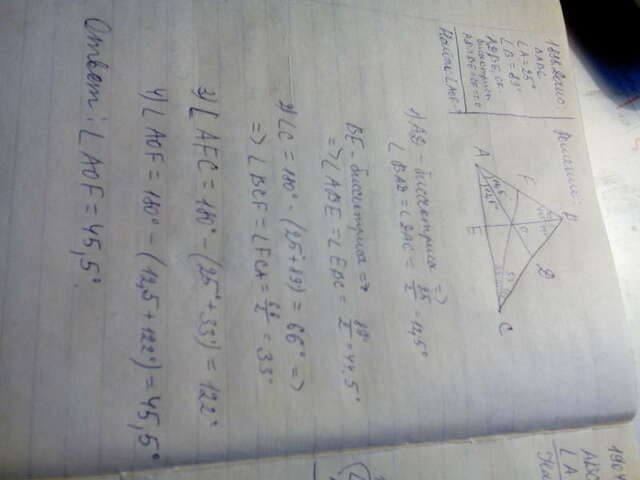 Дано:
Решение:
ΔABC
∠A = 25°
∠B = 89°
AD, BE, CF -
биссектрисы
Найти: ∠AOF-?
B
A
F
O
E
D
C
1) AD - биссектриса =>
∠BAD = ∠DAC = 25/2 = 12,5°
BE - биссектриса =>
=> ∠ABE = ∠EBC = 89°/2 = 44,5°
2) ∠C = 180° - (25° + 89) = 66° =>
=> ∠BCF = ∠FCA = 66/2 = 33°
3) ∠AFC = 180° - (25° + 33°) = 122°
4) ∠AOF = 180° - (12,5 + 122°) = 45,5°
Ответ: ∠AOF = 45,5°.
190
ABC
∠A